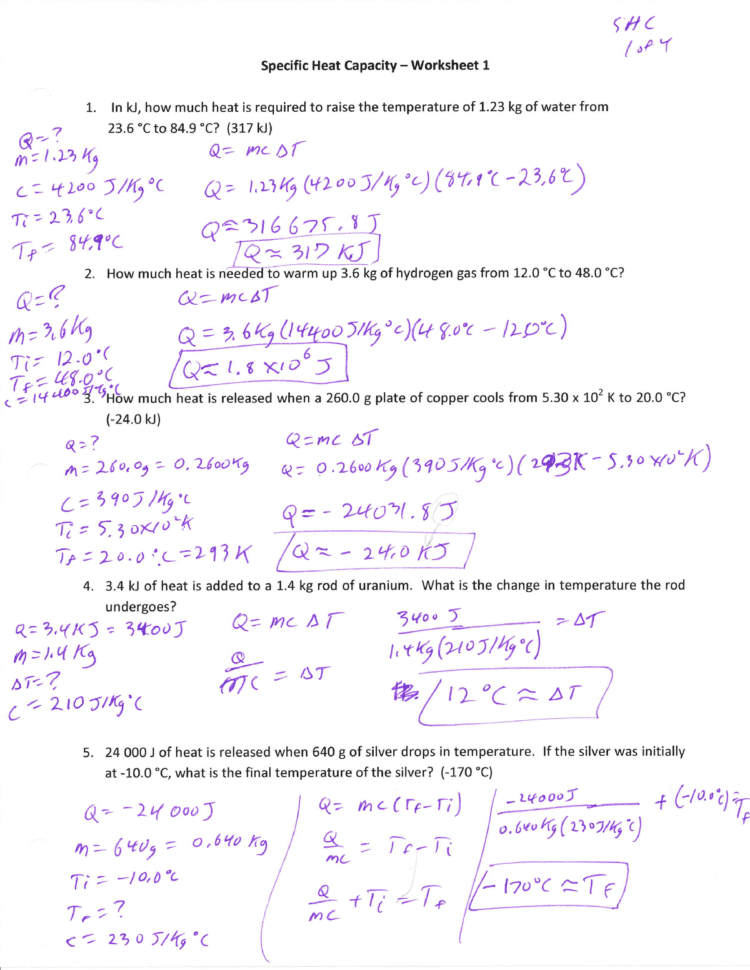 SHC
1 of 4
Specific Heat Capacity – Worksheet 1
1. In kJ, how much heat is required to raise the temperature of 1.23 kg of water from
23.6 °C to 84.9 °C? (317 kJ)
Q=?
m=1.23 Kg
C=4200 J/Kg°C
Ti=23.6°C
Tf=84.9°C
Q=mcΔT
Q=1.23Kg(4200J/Kg°C)(84.9°C-23.6°C)
Q=316675.8J
Q≈317 KJ
2. How much heat is needed to warm up 3.6 kg of hydrogen gas from 12.0 °C to 48.0 °C?
Q=?
m=3.6Kg
Ti=12.0°C
Tf=48.0°C
c=14400J/Kg°C
Q=mcΔT
Q=3.6Kg(14400J/Kg°C)(48.0°C-12.0°C)
Q≈1.8×10⁶J
3. How much heat is released when a 260.0 g plate of copper cools from 5.30 x 10² K to 20.0 °C?
(-24.0 kJ)
Q=?
m=260.0g=0.2600Kg
C=390J/Kg°C
Ti=5.30×10²K
Tf=20.0°C=293K
Q=mcΔT
Q=0.2600Kg(390J/Kg°C)(293K-5.30×10²K)
Q=-24031.8J
Q≈-24.0KJ
4. 3.4 kJ of heat is added to a 1.4 kg rod of uranium. What is the change in temperature the rod
undergoes?
Q=3.4KJ=3400J
m=1.4Kg
ΔT=?
c=210J/Kg°C
Q=mcΔT
Q/mc=ΔT
3400J/1.4Kg(210J/Kg°C)=ΔT
12°C≈ΔT
5. 24 000 J of heat is released when 640 g of silver drops in temperature. If the silver was initially
at -10.0 °C, what is the final temperature of the silver? (-170 °C)
Q=-24000J
m=640g=0.640Kg
Ti=-10.0°C
Tf=?
c=230J/Kg°C
Q=mc(Tf-Ti)
Q/mc=Tf-Ti
Q/mc+Ti=Tf
-24000J/0.640Kg(230J/Kg°C)+(-10.0°C)=Tf
-170°C≈Tf